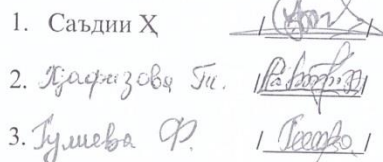 1. Саъдии Ҳ
2. Ҳафизова Т.
3. Гулиева Ф.